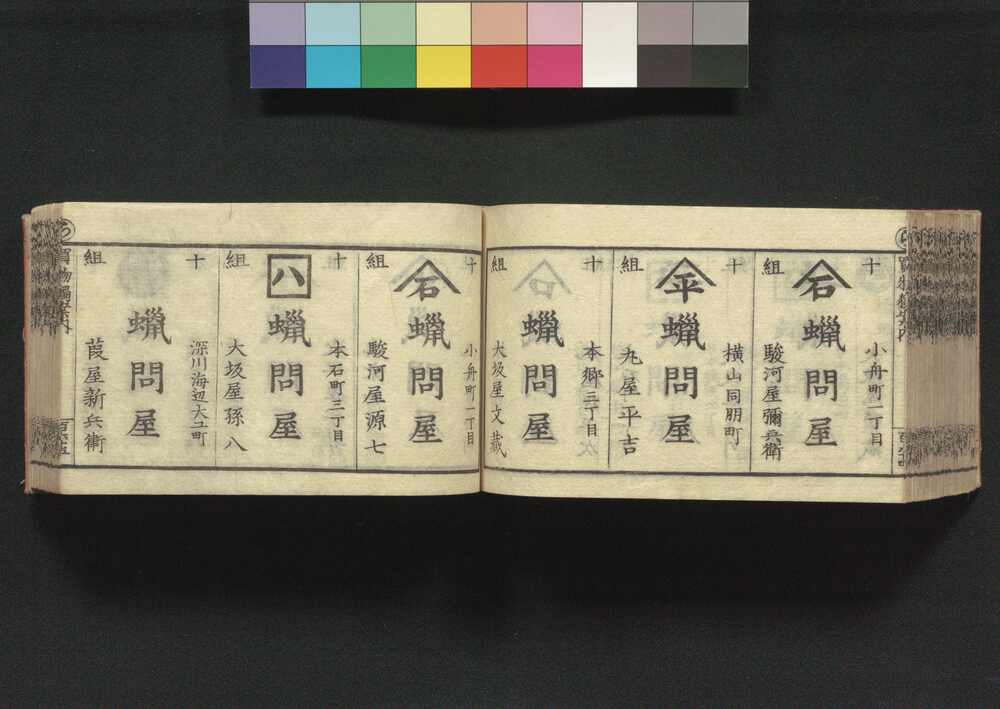 十組
小舟町一丁目
石
蝋問屋
駿河屋彌兵衛
十組
横山同朋町
平
蝋問屋
丸屋平吉
十組
本郷三丁目
蝋問屋
大坂屋文蔵
十組
小舟町一丁目
石
蝋問屋
駿河屋源七
十組
本石町二丁目
八
蝋問屋
大坂屋孫八
十組
深川海辺大工町
蝋問屋
葭屋新兵衛